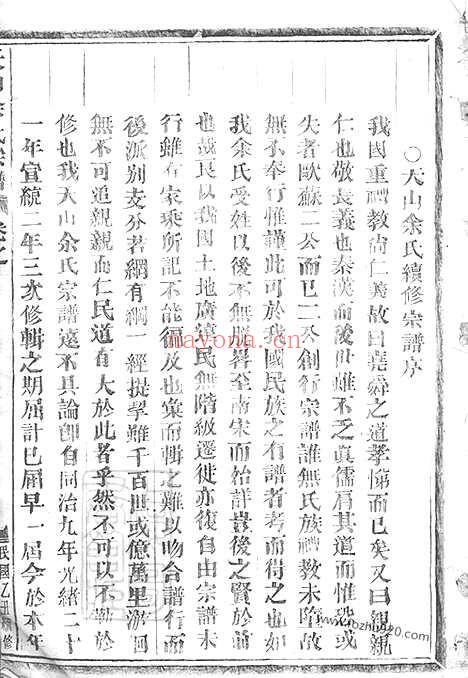 〇大山余氏續修宗譜序
我國重禮教尚仁義故曰堯舜之道孝悌而已矣又曰親親
仁也敬長義也秦漢而後世雖不乏真儒肩其道而惟恐或
失者歐蘇二公而已二公創行宗譜誰無氏族禮教未隋故
無不奉行惟謹此可於我國民族之有譜者考而得之也
我余氏受姓以後不無顯晷至南宋而始詳豈後之賢於前
也哉良以我國土地廣遠民無階級遷徙亦復自由宗譜未
行雖有家乘所記不能徧及也彙而輯之難以吻合譜行而
後派別支分若網有綱一經提挈雖千百世或億萬里派回
無不可追親親而仁民道有大於此者乎然不可以不勤於
修也我大山余氏宗譜遠不具論卽自同治九年光緒二十
一年宣統二年三次修輯之期屈計已屆早一屆今於本年
民國乙丑續修
mayona.cn
www.jiapu20.com